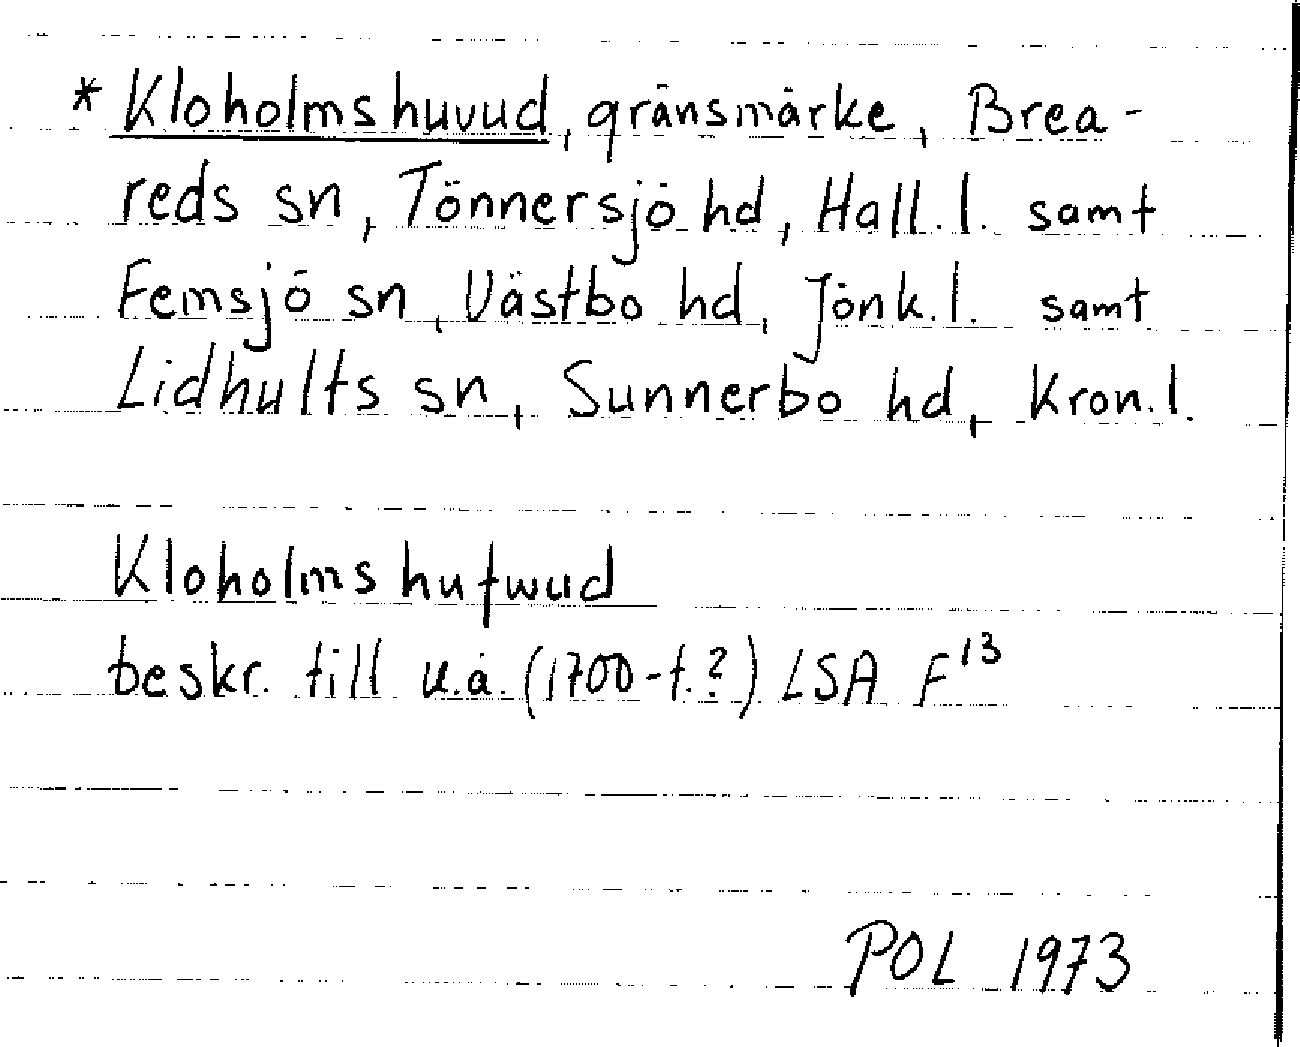 * Kloholmshuvud, gränsmärke, Brea-
reds sn, Tönnersjö hd, Hall. l. samt
Femsjö sn, Västbo hd, Jönk. l. samt
Lidhults sn, Sunnerbo hd, Kron. l.
Kloholms hufwud
beskr. till u.å. (1700-t.?) LSA F¹³
POL 1973